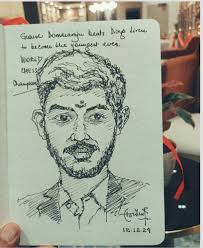 Gukesh Dommaraju beats Ding Liren
to become the youngest ever
WORLD
CHESS
Champion
12.12.24